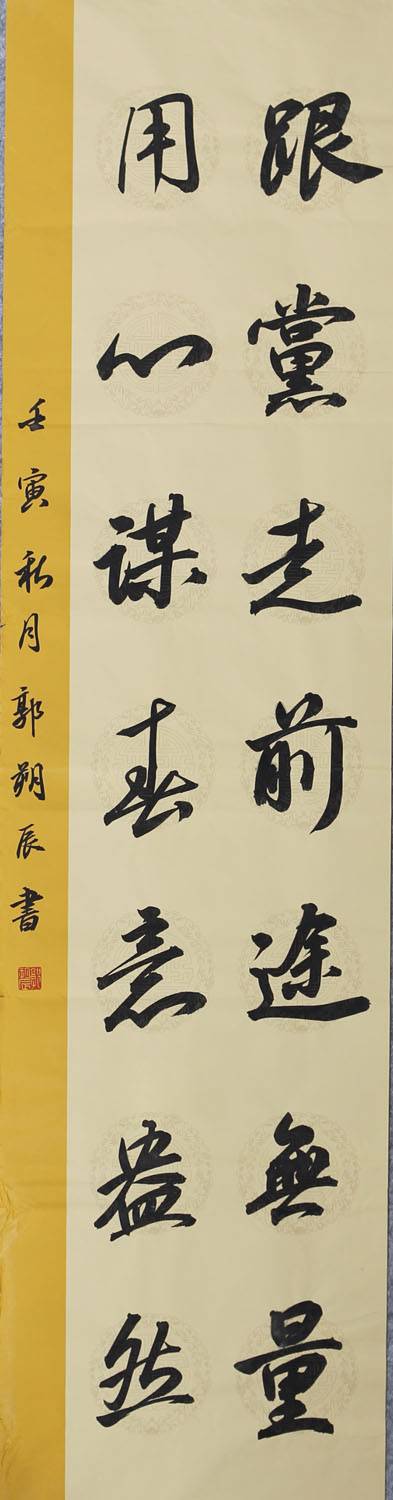 跟黨走前途無量
用心謀春意盎然
壬寅秋月郭朔辰書